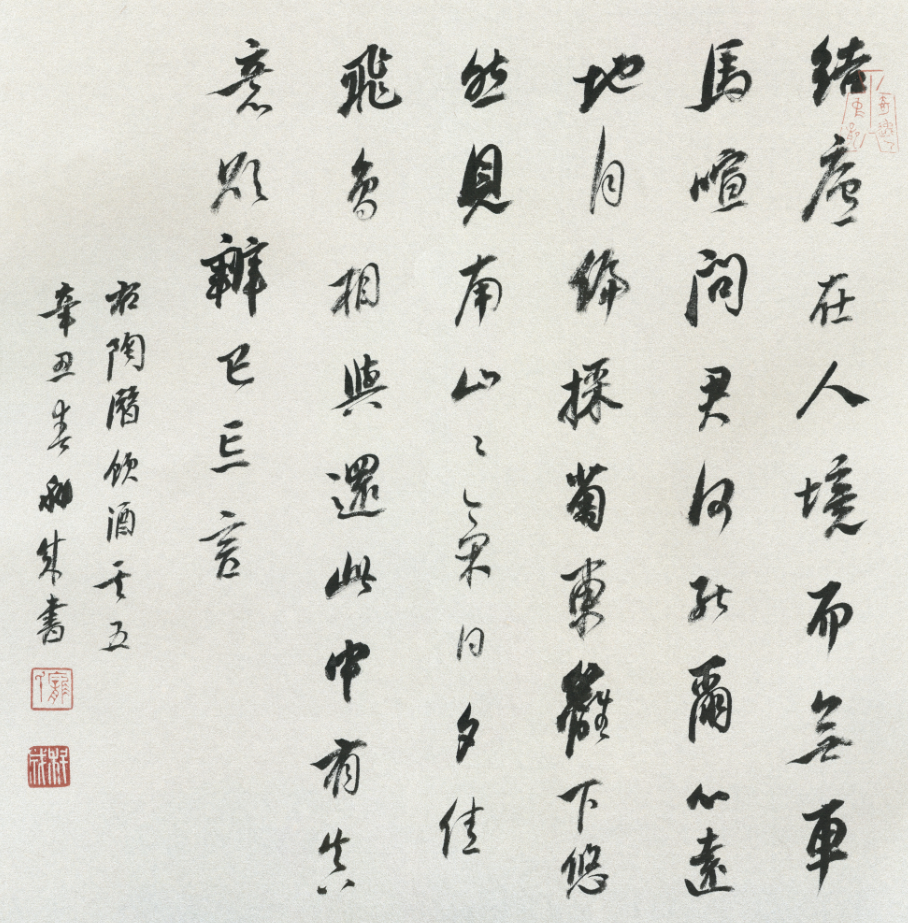 結廬在人境而無車
馬喧問君何能爾心遠
地自偏採菊東籬下悠
然見南山山氣日夕佳
飛鳥相與還此中有真
意欲辨已忘言
松陶潛飲酒其五
辛丑春成書